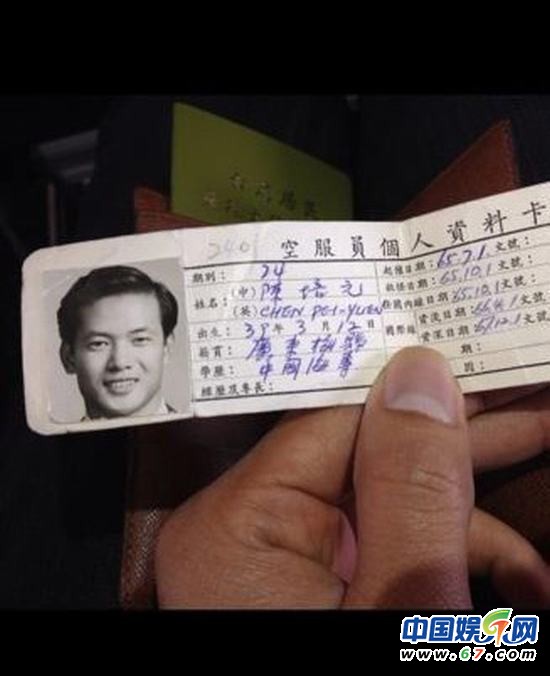 240 空服員個人資料卡
期別: 24
起陞日期:65.7.1.文號:
姓名: (中) 陳培元
(英) CHEN PEI-YUEN
65.10.1 文號:
65.10.1 文號:
出生: 39年3月12日
日期:66.4.1 文號:
籍貫: 廣東梅縣
國際線
資深日期:67.12.1 文號:
學歷: 中國海專
期:
經歷及專長:
中国娱乐网
www.67.com